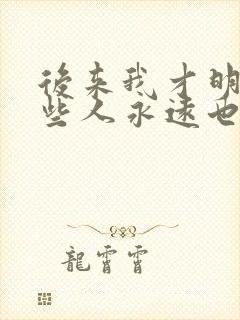 後来我才明
些人永遠也
龍霄霄